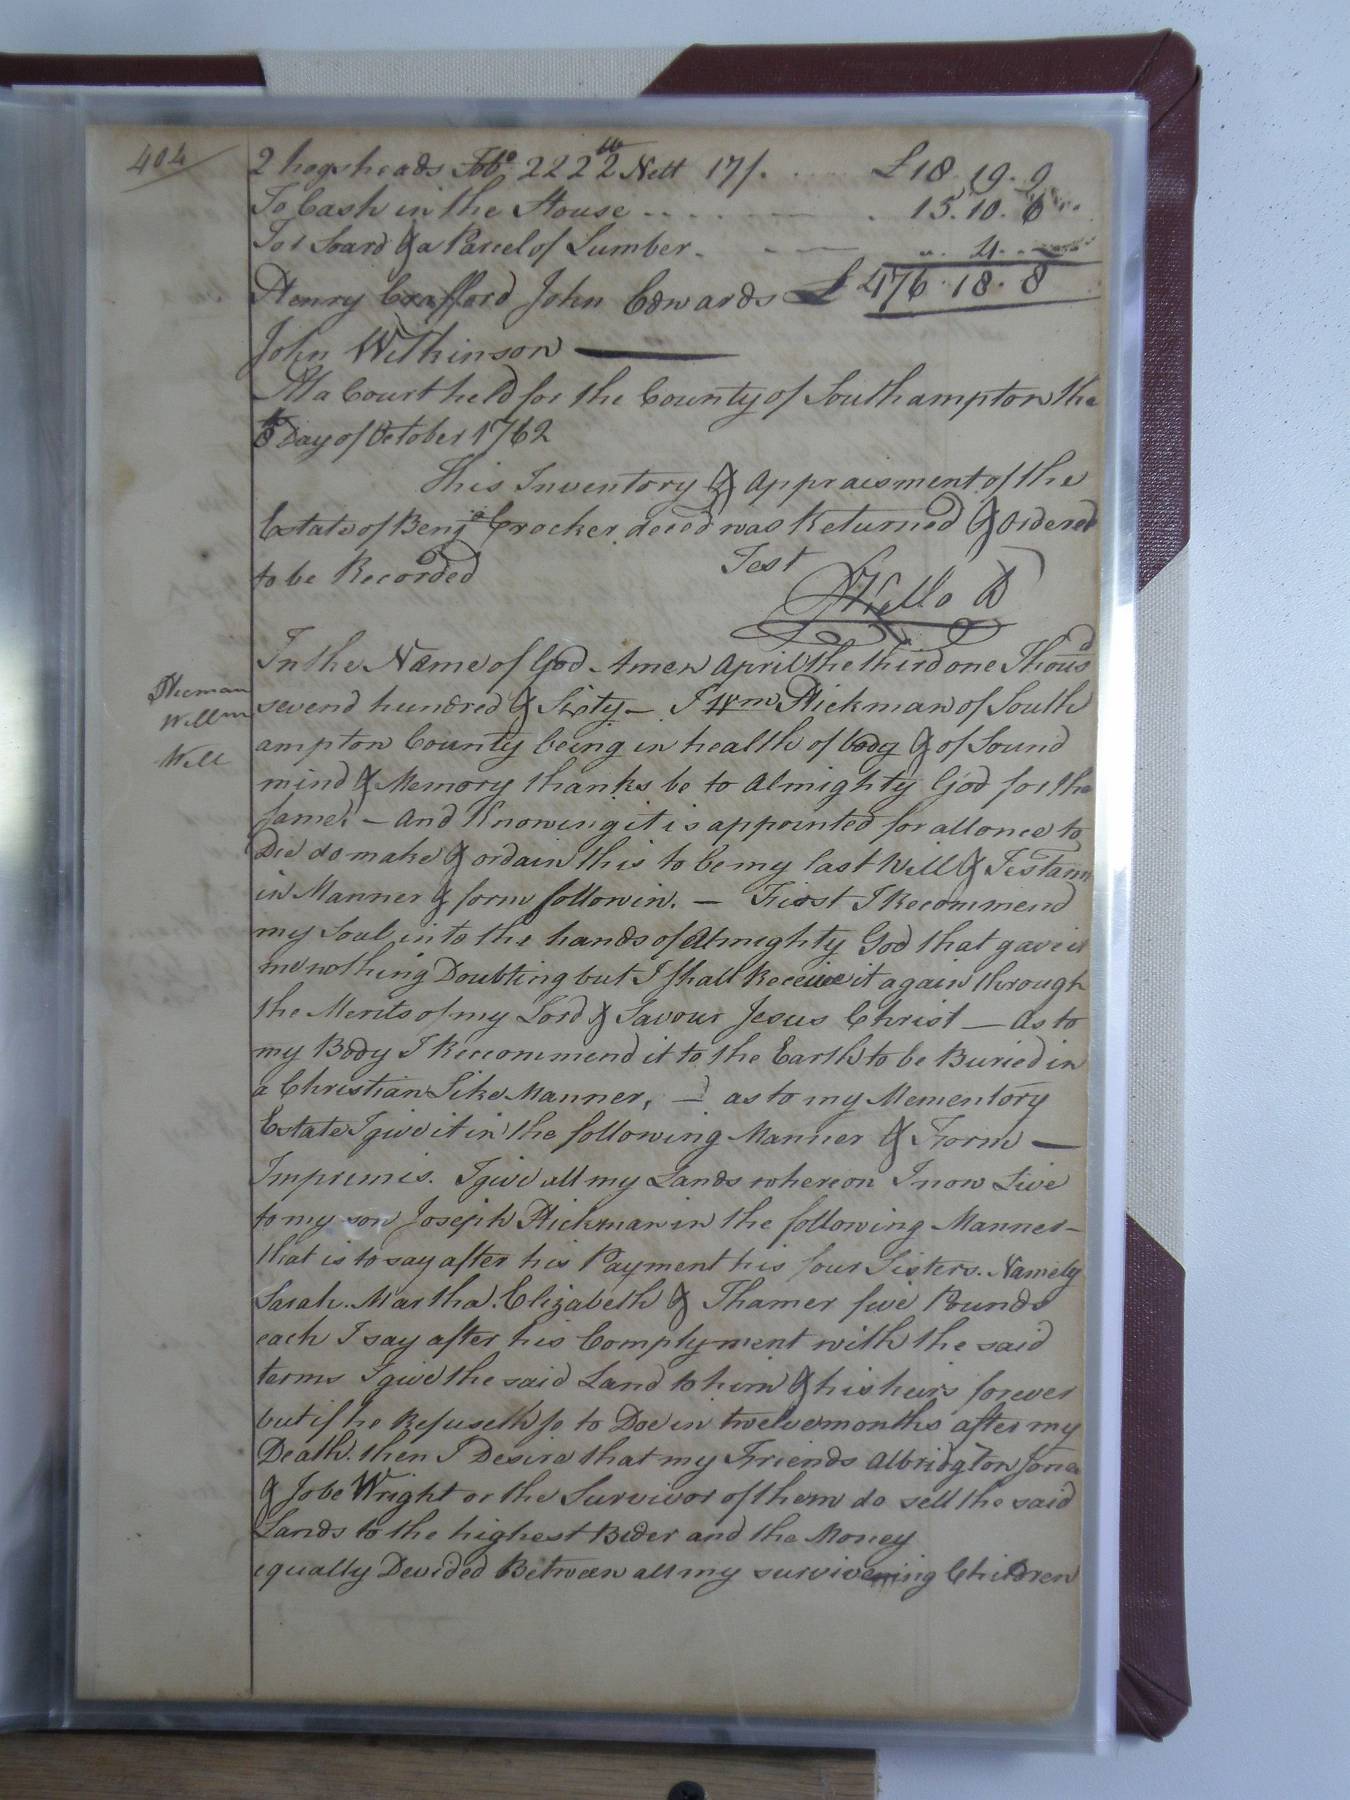 404
2 hogsheads Tobo. 2222 lb Nett 17/. £18.19.9
To Cash in the House 15.10.6
To 1 board & a Parcel of Lumber 4
Henry Crafford John Edwards £476.18.8
John Wilkinson
At a Court held for the County of Southampton the
8th Day of October 1762
This Inventory & Appraisment of the
Estate of Benja Crocker deced was Returned & Ordered
to be Recorded
Test
In the Name of God Amen April the third one Thousd
Hicman
Willm
Will
sevend hundred & Sixty - I Wm Hickman of South
ampton County being in health of body & of Sound
mind & Memory thanks be to Almighty God for the
same. - And Knowing it is appointed for all once to
Die do make & ordain this to be my last Will & Testam
in Manner & form followin. - First I Recommend
my Soul into the hands of Almighty God that gave it
me nothing Doubting but I shall Receive it again through
the Merits of my Lord & Savour Jesus Christ - As to
my Body I Reccommend it to the Earth to be Buried in
a Christian Like Manner, - as to my Mementory
Estate I give it in the following Manner & Form -
Impremis. I give all my Lands whereon I now Live
to my son Joseph Hickman in the following Manner -
that is to say after his Payment his four Sisters. Namely
Sarah. Martha. Elizabeth & Thamer five Pounds
each I say after his Complyment with the said
terms I give the said Land to him & his heirs forever
but if he Refuseth so to Doe in twelve months after my
Death. then I Desire that my Friends Albridgton Jones
& Jobe Wright or the Survivor of them do sell the said
Lands to the highest Bider and the Money
equally Devided Between all my surviveing Children